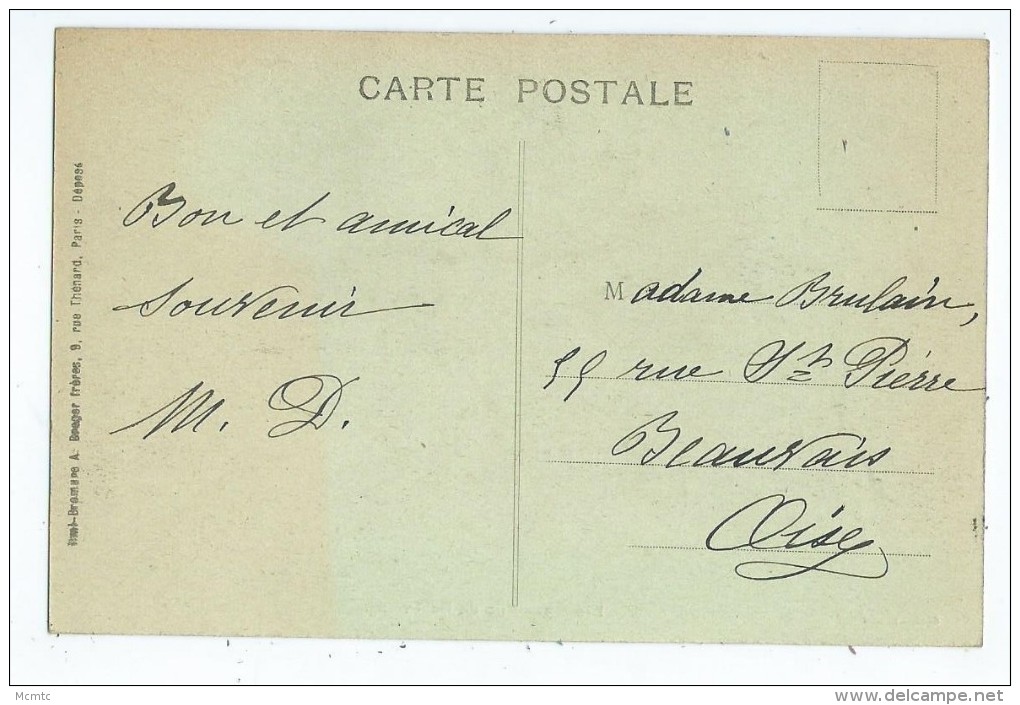 CARTE POSTALE
Bon et amical
souvenir
M. D.
Madame Brulain,
55 rue St Pierre
Beauvais
Oise
A. Breger frères, 9, rue Thénard, Paris - Déposé
Mcmtc
www.delcampe.net